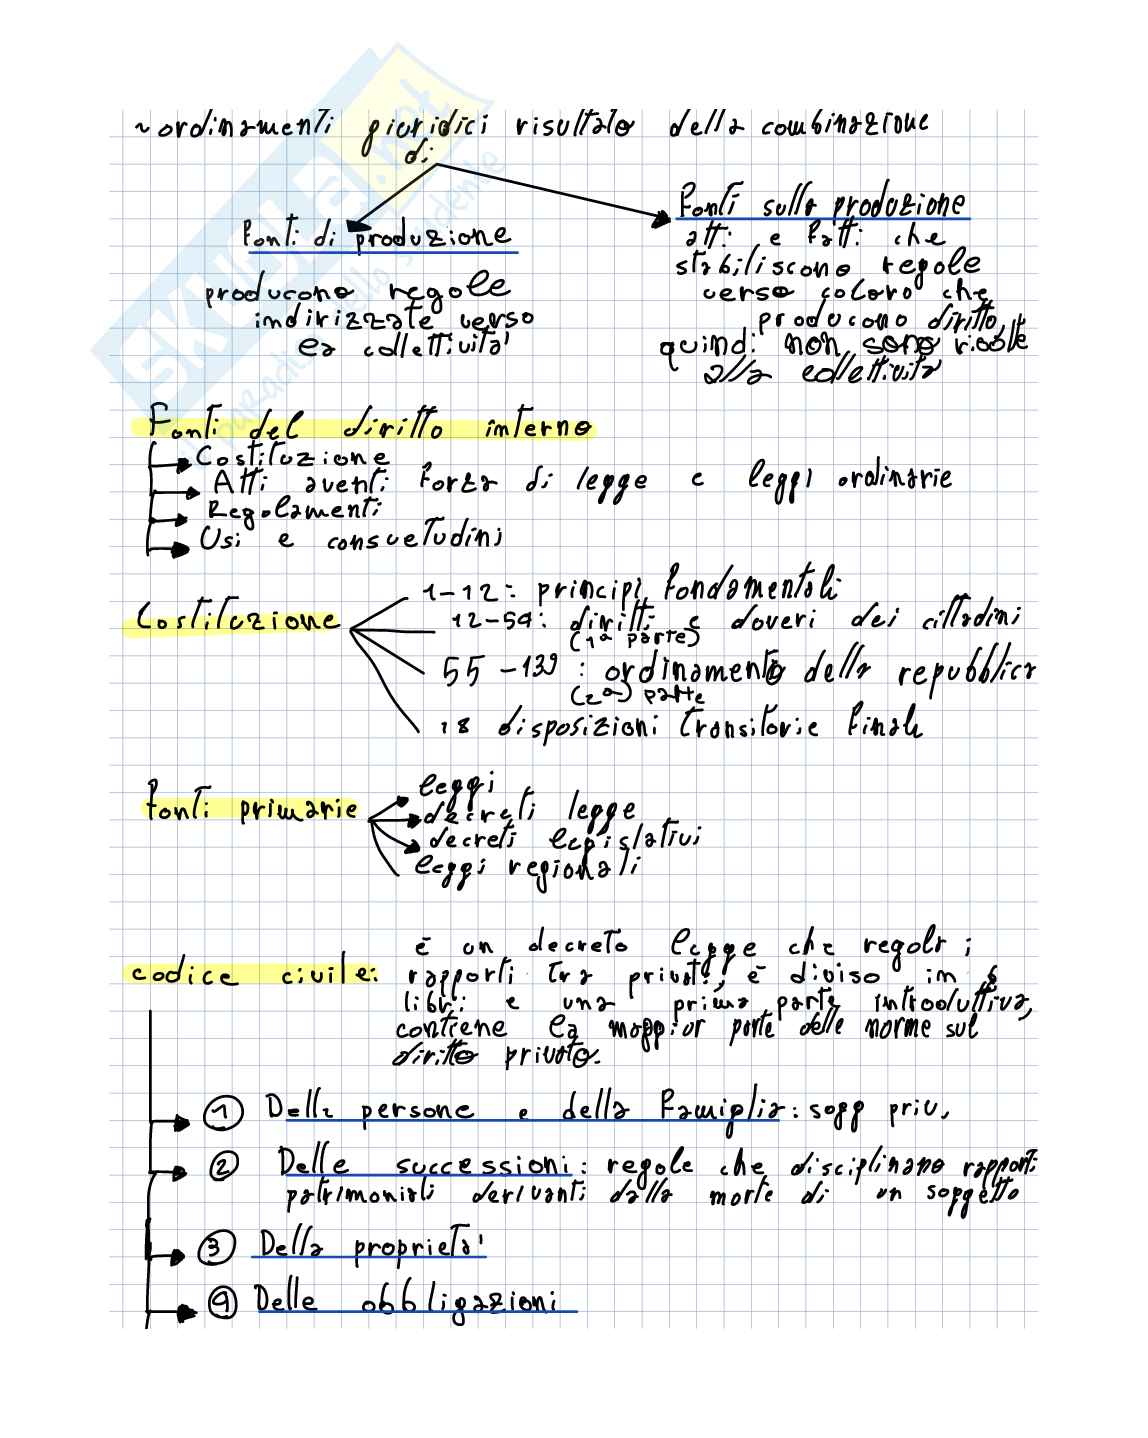 ~ ordinamenti giuridici risultato della combinazione
di
Fonti di produzione
producono regole
indirizzate verso
la collettività
Fonti sulla produzione
atti e fatti che
stabiliscono regole
verso coloro che
producono diritto,
quindi non sono rivolte
alla collettività
Fonti del diritto interno
Costituzione
Atti aventi forza di legge e leggi ordinarie
Regolamenti
Usi e consuetudini
Costituzione
1-12: principi fondamentali
12-54: diritti e doveri dei cittadini
(1ª parte)
55-139: ordinamento della repubblica
(2ª) parte
18 disposizioni transitorie finali
Fonti primarie
leggi
decreti legge
decreti legislativi
leggi regionali
codice civile:
è un decreto legge che regola i
rapporti tra privati, è diviso in 6
libri e una prima parte introduttiva,
contiene la maggior parte delle norme sul
diritto privato.
1 Delle persone e della famiglia: sogg priv,
2 Delle successioni: regole che disciplinano rapporti
patrimoniali derivanti dalla morte di un soggetto
3 Della proprietà
4 Delle obbligazioni
SKUOLA.net